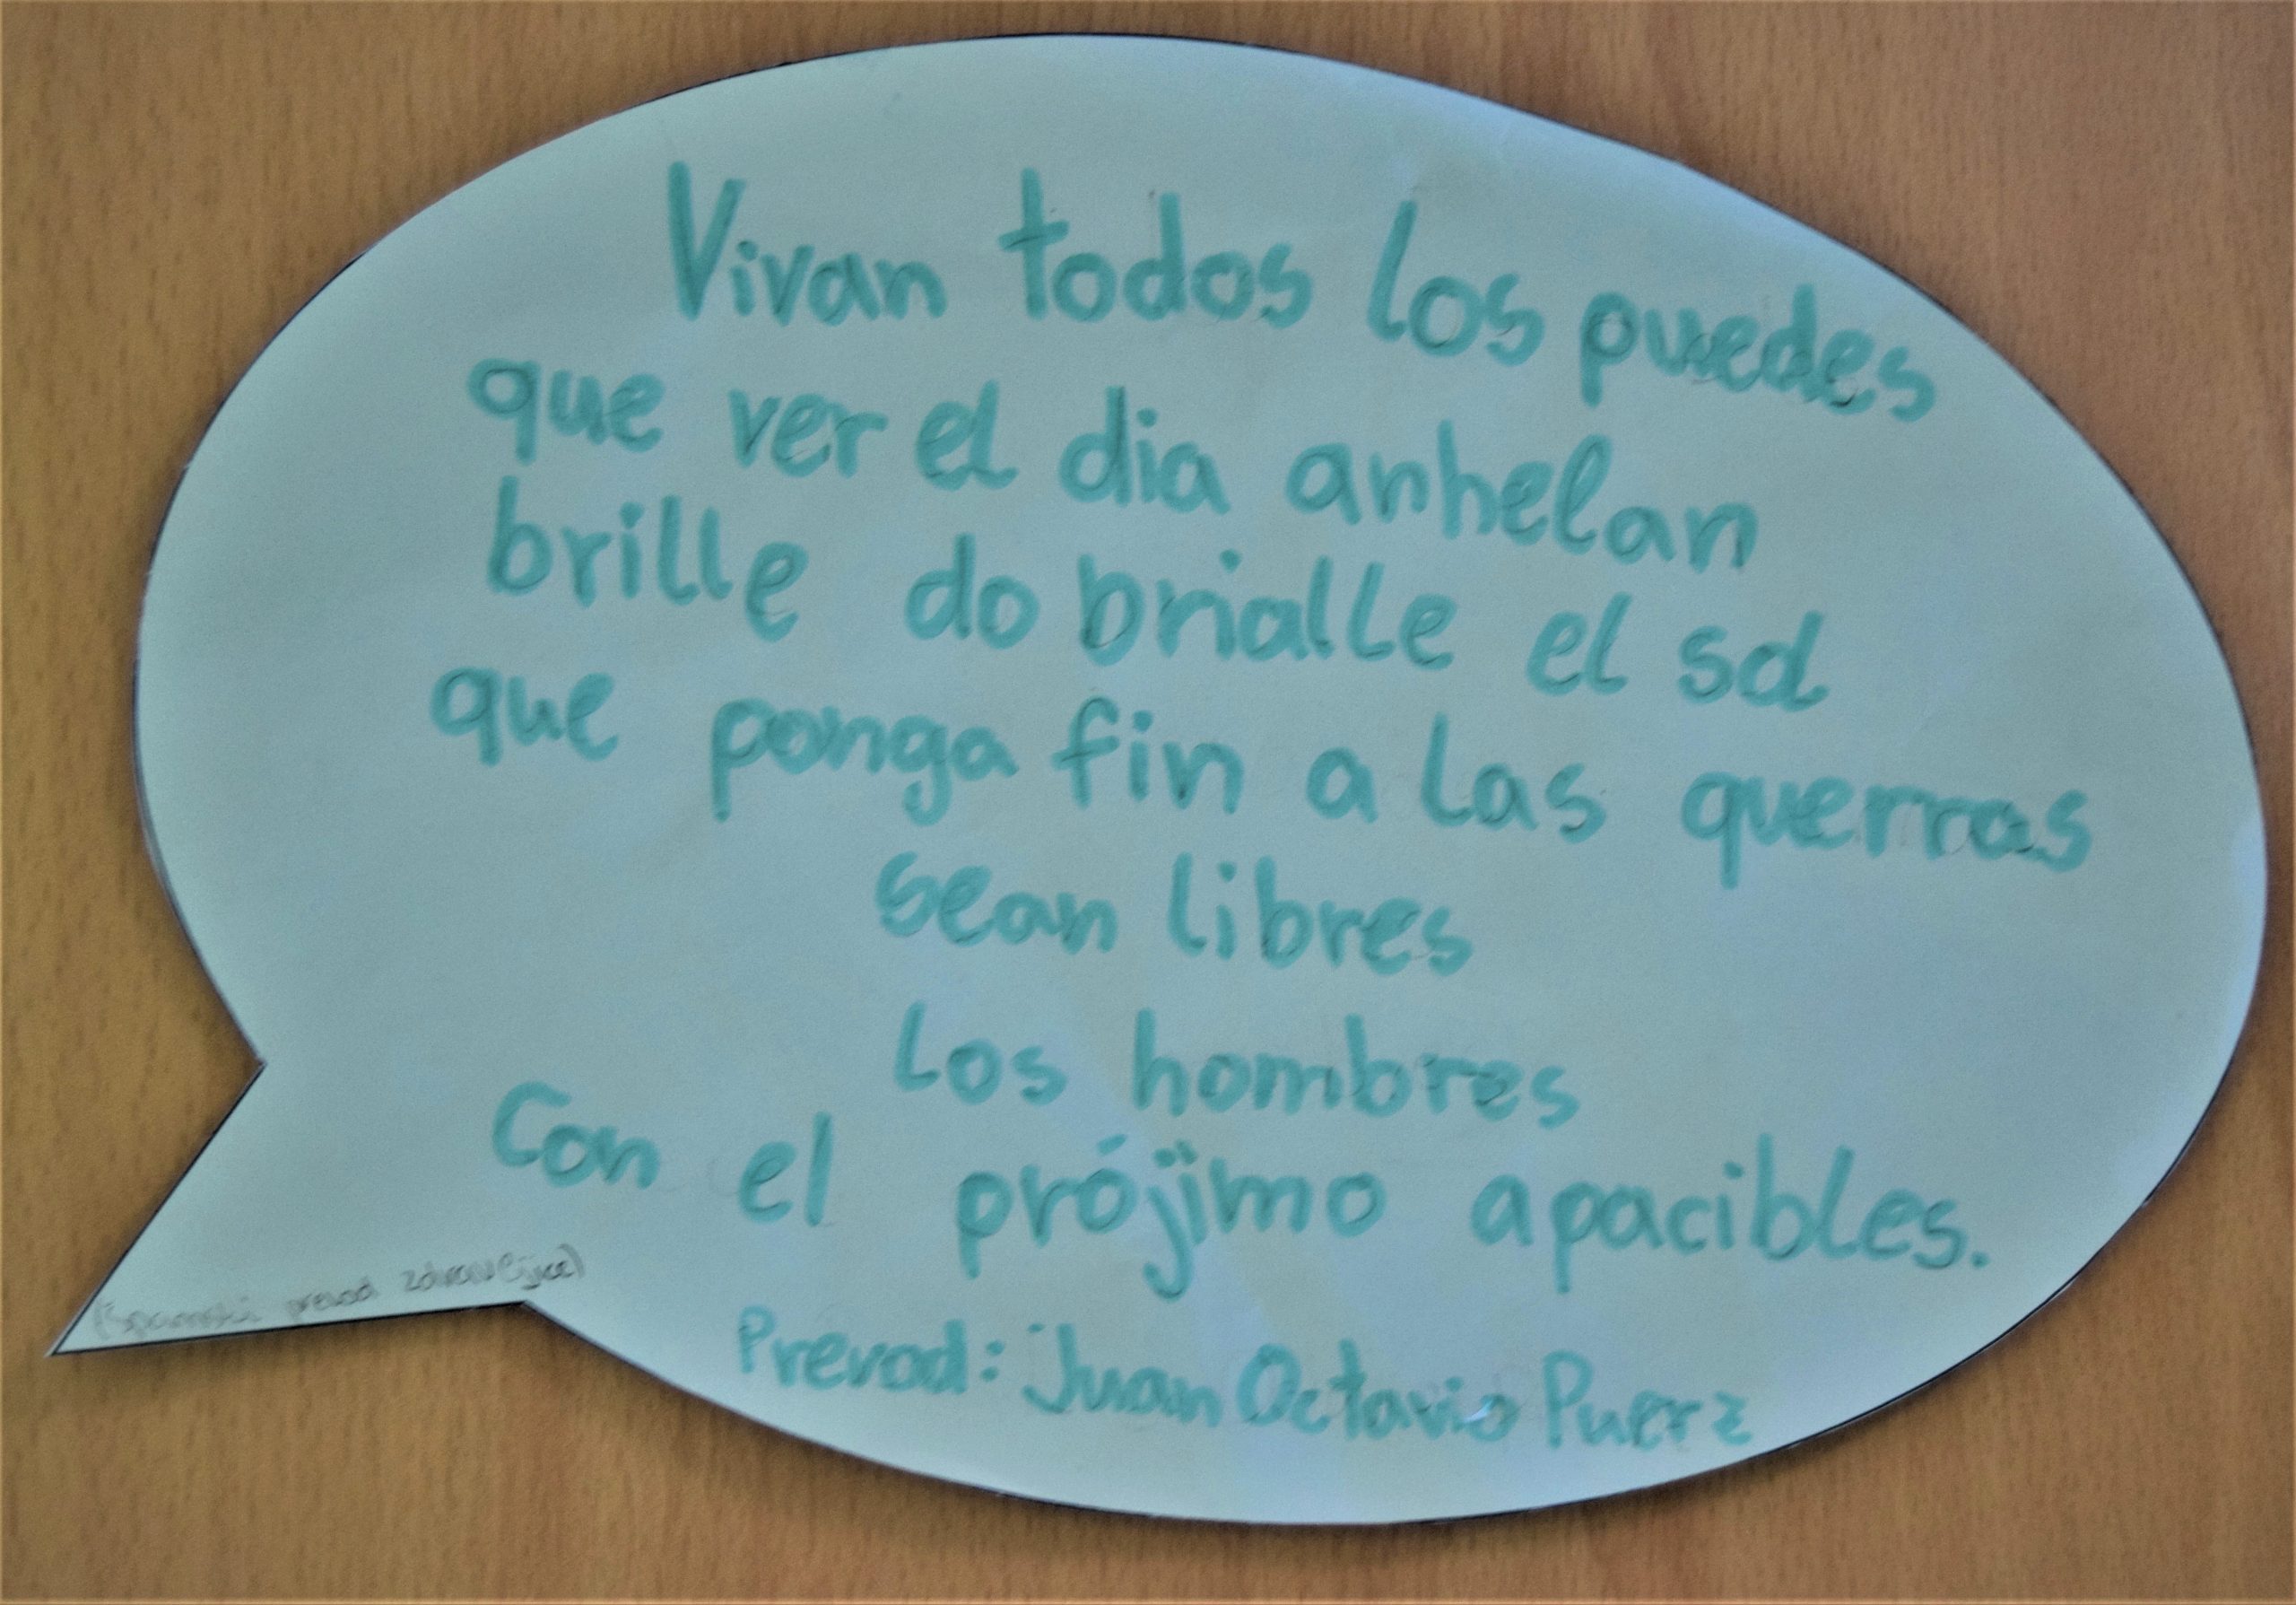 Vivan todos los puedes
que ver el dia anhelan
brille do brialle el sol
que ponga fin a las querras
sean libres
los hombres
Con el prójimo apacibles.
Prevod: Juan Octavio Puerz
(Spanski prevod zdravljice)